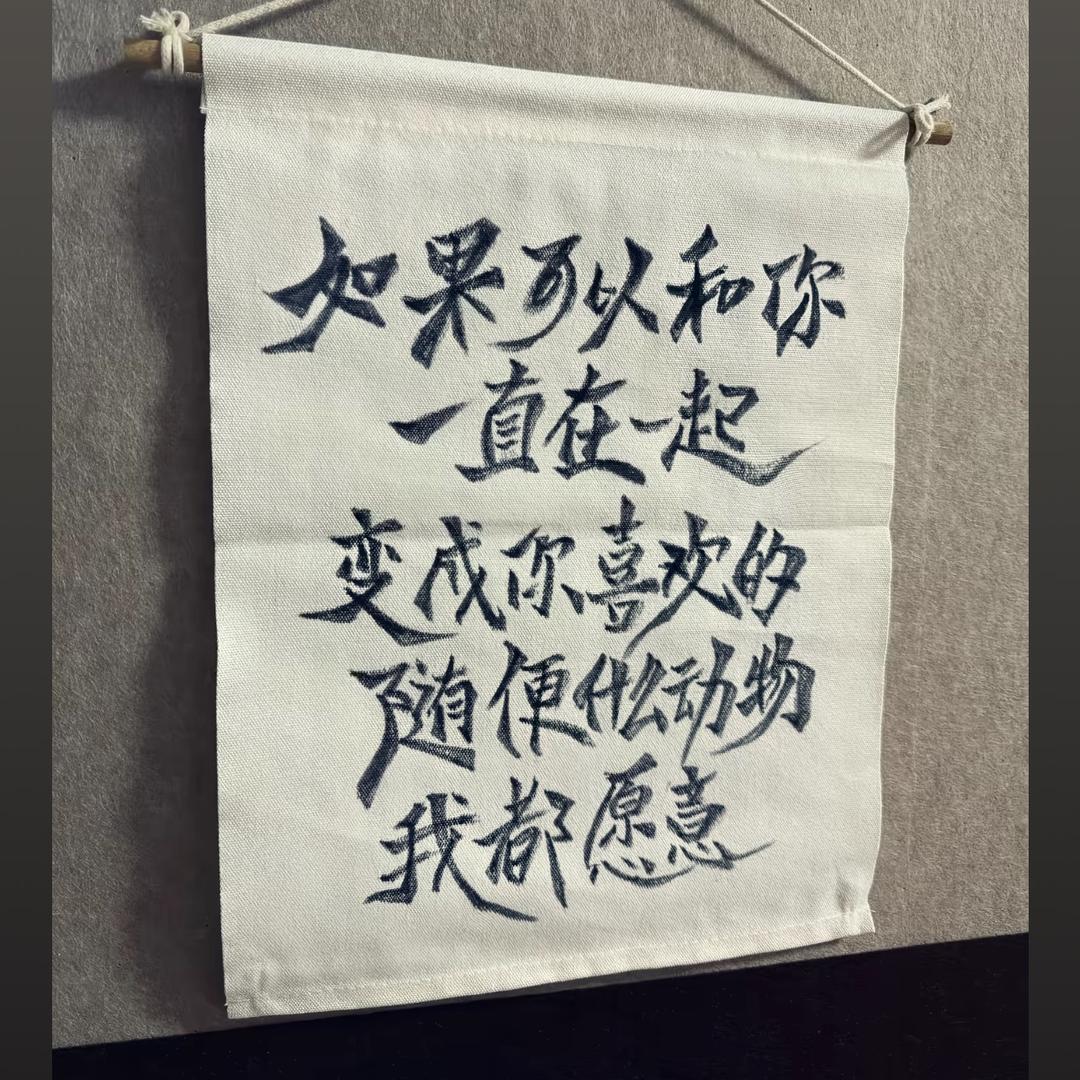 如果可以和你
一直在一起
变成你喜欢的
随便什么动物
我都愿意